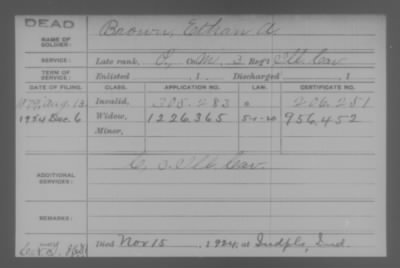 DEAD
NAME OF SOLDIER: Brown, Ethan A.
SERVICE: Late rank, Co. M, 3 Reg't Ill. Cav.
TERM OF SERVICE: Enlisted , 1 . Discharged , 1
DATE OF FILING. CLASS. APPLICATION NO. LAW. CERTIFICATE NO.
Aug. 13 Invalid, 305.283 206.251
1924 Dec. 6 Widow, 1.226.365 5-1-20 956.452
Minor,
ADDITIONAL SERVICES: Ill. Cav.
REMARKS:
Died Nov 15, 1924, at Indpls, Ind.